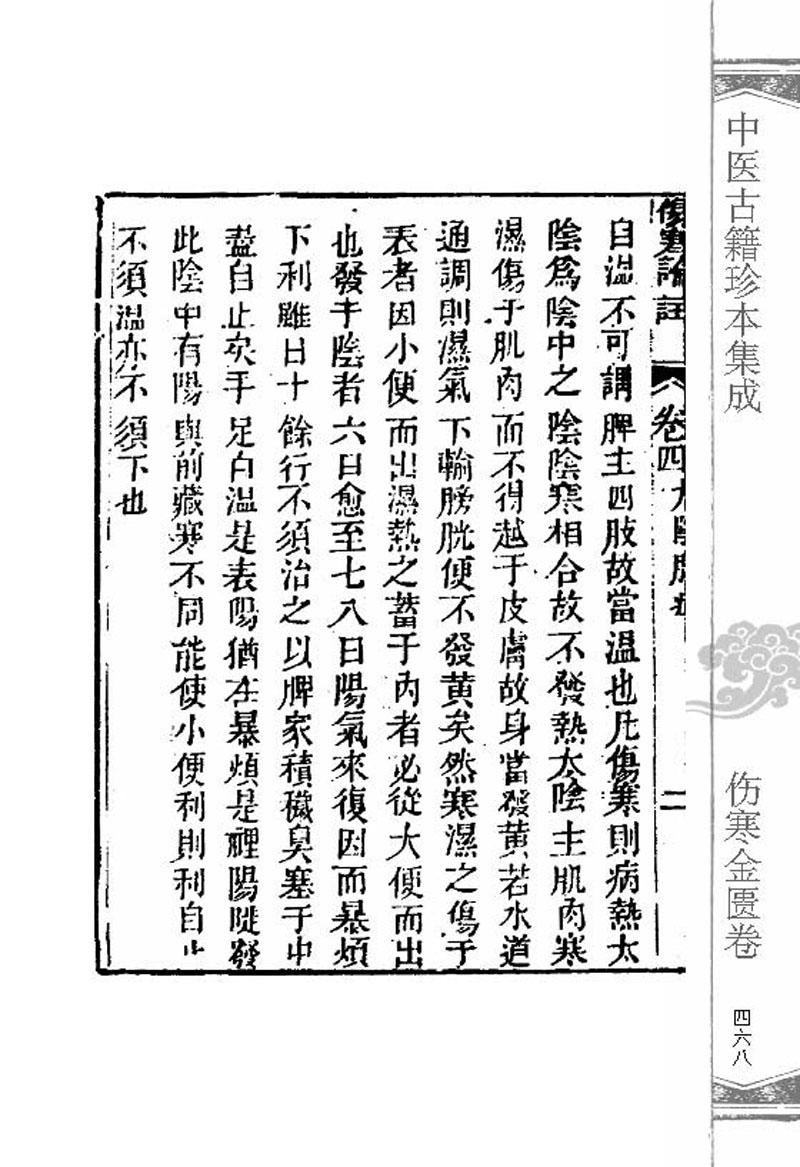 傷寒論註
卷四太陰脈症
二
自溫不可謂脾主四肢故當溫也凡傷寒則病熱太
陰爲陰中之陰陰寒相合故不發熱太陰主肌肉寒
濕傷于肌肉而不得越于皮膚故身當發黃若水道
通調則濕氣下輸膀胱便不發黃矣然寒濕之傷于
表者因小便而出濕熱之蓄于內者必從大便而出
也發于陰者六日愈至七八日陽氣來復因而暴煩
下利雖日十餘行不須治之以脾家積穢臭塞于中
盡自止矣手足自溫是表陽猶在暴煩是裡陽陡發
此陰中有陽與前藏寒不同能使小便利則利自止
不須溫亦不須下也
中医古籍珍本集成
伤寒金匮卷
四六八